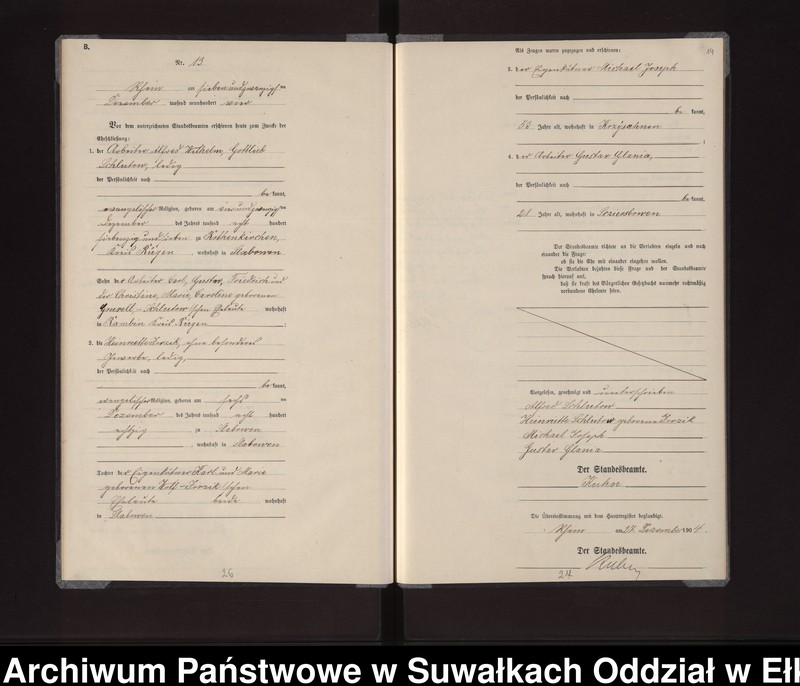 B.
Nr. 13
Rhein am siebenundzwanzigsten
Dezember tausend neunhundert vier
Vor dem unterzeichneten Standesbeamten erschienen heute zum Zwecke der
Eheschließung:
1. der Arbeiter Alfred Wilhelm, Gottlieb
Schleetow, ledig
der Persönlichkeit nach
be kannt,
evangelischer Religion, geboren am
Dezember des Jahres tausend acht hundert
siebenzig und sieben zu Rothenkirchen,
Kreis Rügen, wohnhaft in Stabowen
Sohn des Arbeiter Carl, Gustav, Friedrich und
der Christiane, Marie, Caroline geborenen
Schleetow'schen Eheleute wohnhaft
in Rambin Kreis Rügen
2. die Henriette Jorzik, ohne besonderes
Gewerbe, ledig,
der Persönlichkeit nach
be kannt,
evangelischer Religion, geboren am sechs ten
Dezember des Jahres tausend acht hundert
achtzig zu Stabowen
, wohnhaft in Stabowen
Tochter des Eigenkätner Karl und Marie
geborenen
Eheleute beide wohnhaft
in Stabowen
26
Als Zeugen waren zugezogen und erschienen:
14
3. der Eigenkätner Michael Joseph
der Persönlichkeit nach
be kannt,
53 Jahre alt, wohnhaft in Krzysahnen
4. der Arbeiter Gustav Glania,
der Persönlichkeit nach
be kannt,
21 Jahre alt, wohnhaft in
Der Standesbeamte richtete an die Verlobten einzeln und nach
einander die Frage:
ob sie die Ehe mit einander eingehen wollen.
Die Verlobten bejahten diese Frage und der Standesbeamte
sprach hierauf aus,
daß sie kraft des Bürgerlichen Gesetzbuchs nunmehr rechtmäßig
verbundene Eheleute seien.
Vorgelesen, genehmigt und unterschrieben
Alfred Schleetow
Heinriette Schleetow geborene Jorzik
Michael Joseph
Gustav Glania
Der Standesbeamte.
Kuhn
Die Übereinstimmung mit dem Hauptregister beglaubigt.
Rhein am 27. Dezember 1904.
Der Standesbeamte.
Kuhn
24
Archiwum Państwowe w Suwałkach Oddział w Ełk